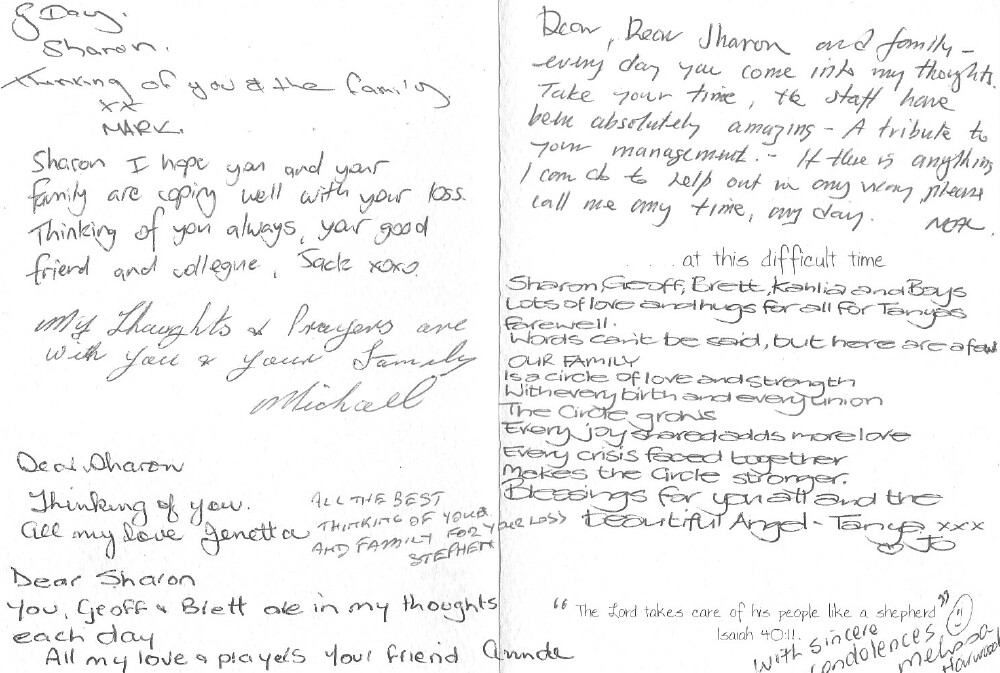 G Day.
Sharon.
Thinking of you & the family.
xx
MARK.
Sharon I hope you and your
family are coping well with your loss.
Thinking of you always, your good
friend and collegue, Jack xoxo.
My Thoughts & Prayers are
with you & your Family
Michael
Dear Sharon
Thinking of you.
All my love Jenetta
ALL THE BEST
THINKING OF YOU &
AND FAMILY FOR YOUR LOSS
STEPHEN
Dear Sharon
You, Geoff & Brett are in my thoughts
each day
All my love & prayers Your friend
Dear, Dear Sharon and family -
every day you come into my thoughts.
Take your time, the staff have
been absolutely amazing - A tribute to
your management. - If there is anything
I can do to help out in any way, please
call me any time, any day.
at this difficult time
Sharon, Geoff, Brett, Kahlia and Boys
Lots of love and hugs for all for Tanyas
farewell.
Words can't be said, but here are a few
OUR FAMILY
Is a circle of love and strength
With every birth and every union
The Circle grows
Every joy shared adds more love
Every crisis faced together
Makes the Circle stronger.
Blessings for you all and the
beautiful Angel - Tanya xxx
Jo
"The Lord takes care of his people like a shepherd"
Isaiah 40:11.
With sincere
condolences
Melissa
Harwood